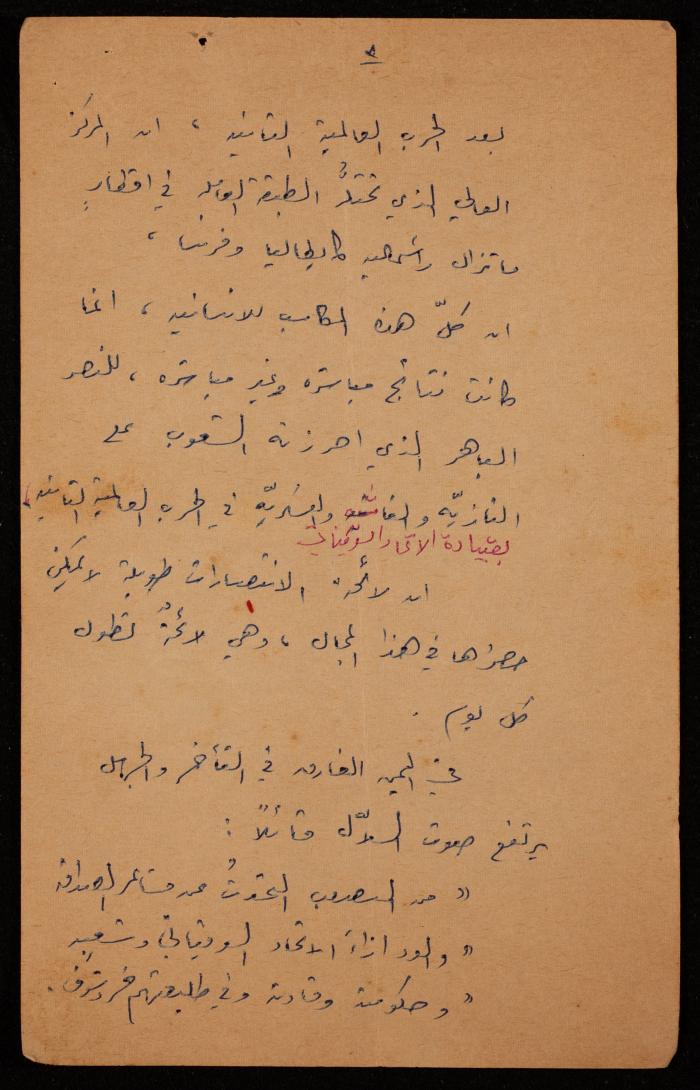 ٨
بعد الحرب العالمية الثانية ، ان المركز
العالي الذي تحتلُّه الطبقة العاملة في اقطارٍ
ماتزال رأسمالية كايطاليا وفرنسا ،
ان كلّ هذه المكاسب للانسانية ، انما
كانت نتائج مباشرة وغير مباشرة ، للنصر
الباهر الذي احرزته الشعوب على
النازيّة والفاشية والعسكريّة في الحرب العالمية الثانية ،
بقيادة الاتحاد السوفيتي
ان لائحة الانتصارات طويلة لا يمكن
حصرُها في هذا المجال ، وهي لائحةٌ تطول
كل يوم .
في اليمن الغارق في التأخر والجهل
يرتفع صوت السلاّل قائلاً :
" من الصعب السكوتُ عن مشاعر الصداقة
" والود ازاء الاتحاد السوفياتي وشعبه
" وحكومته وقادته وفي طليعتهم خروتشوف .